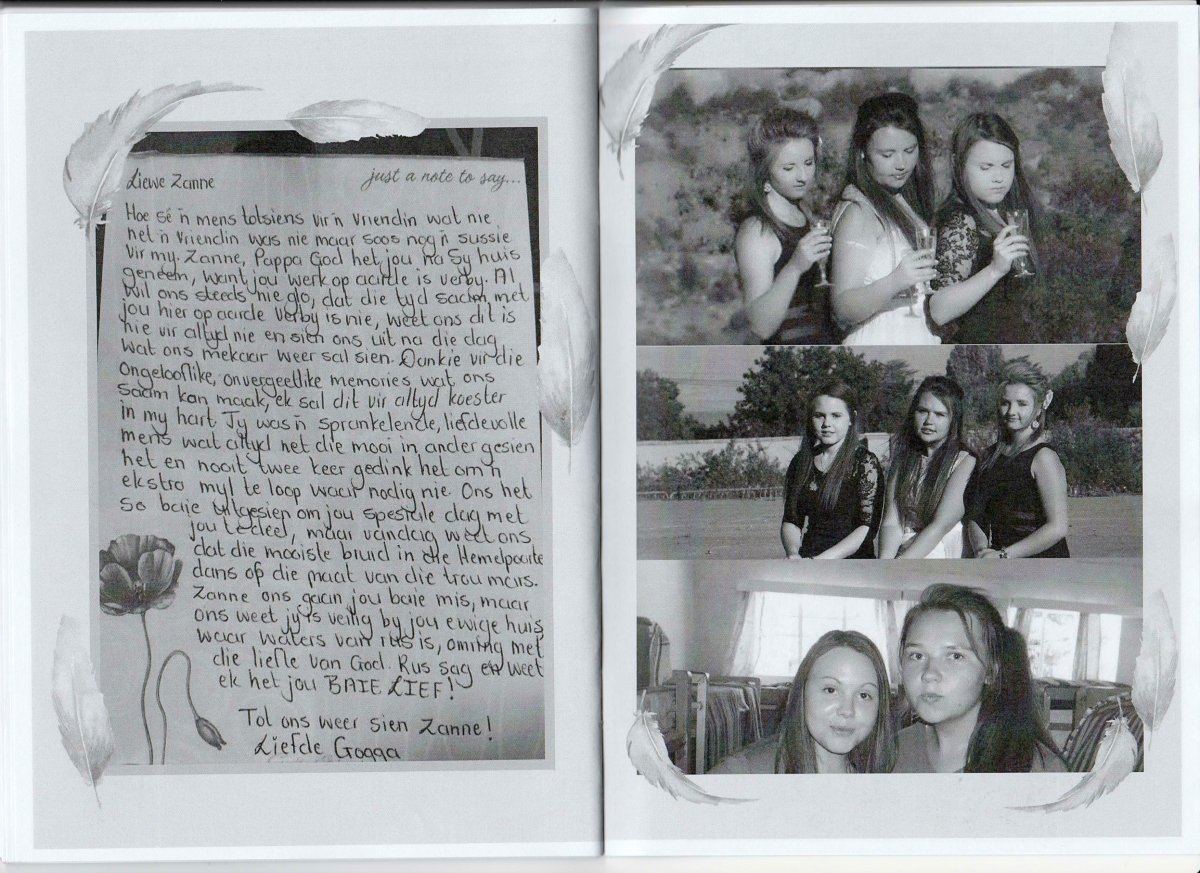 just a note to say...
Liewe Zanne
Hoe sê 'n mens totsiens vir 'n vriendin wat nie
net 'n vriendin was nie maar soos nog 'n sussie
vir my. Zanne, Pappa God het jou na Sy huis
geneem, want jou werk op aarde is verby. Al
wil ons steeds nie glo, dat die tyd saam met
jou hier op aarde verby is nie, weet ons dit is
nie vir altyd nie en sien ons uit na die dag
wat ons mekaar weer sal sien. Dankie vir die
ongelooflike, onvergeetlike memories wat ons
saam kan maak, ek sal dit vir altyd koester
in my hart. Jy was 'n sprankelende, liefdevolle
mens wat altyd net die mooi in ander gesien
het en nooit twee keer gedink het om 'n
ekstra myl te loop waar nodig nie. Ons het
so baie uitgesien om jou spesiale dag met
jou te deel, maar vandag weet ons
dat die mooiste bruid in die Hemelpoorte
dans op die maat van die trou mars.
Zanne ons gaan jou baie mis, maar
ons weet jy is veilig by jou ewige huis
waar waters van rus is, omring met
die liefte van God. Rus sag en weet
ek het jou BAIE LIEF!
Tot ons weer sien Zanne!
Liefde Gogga